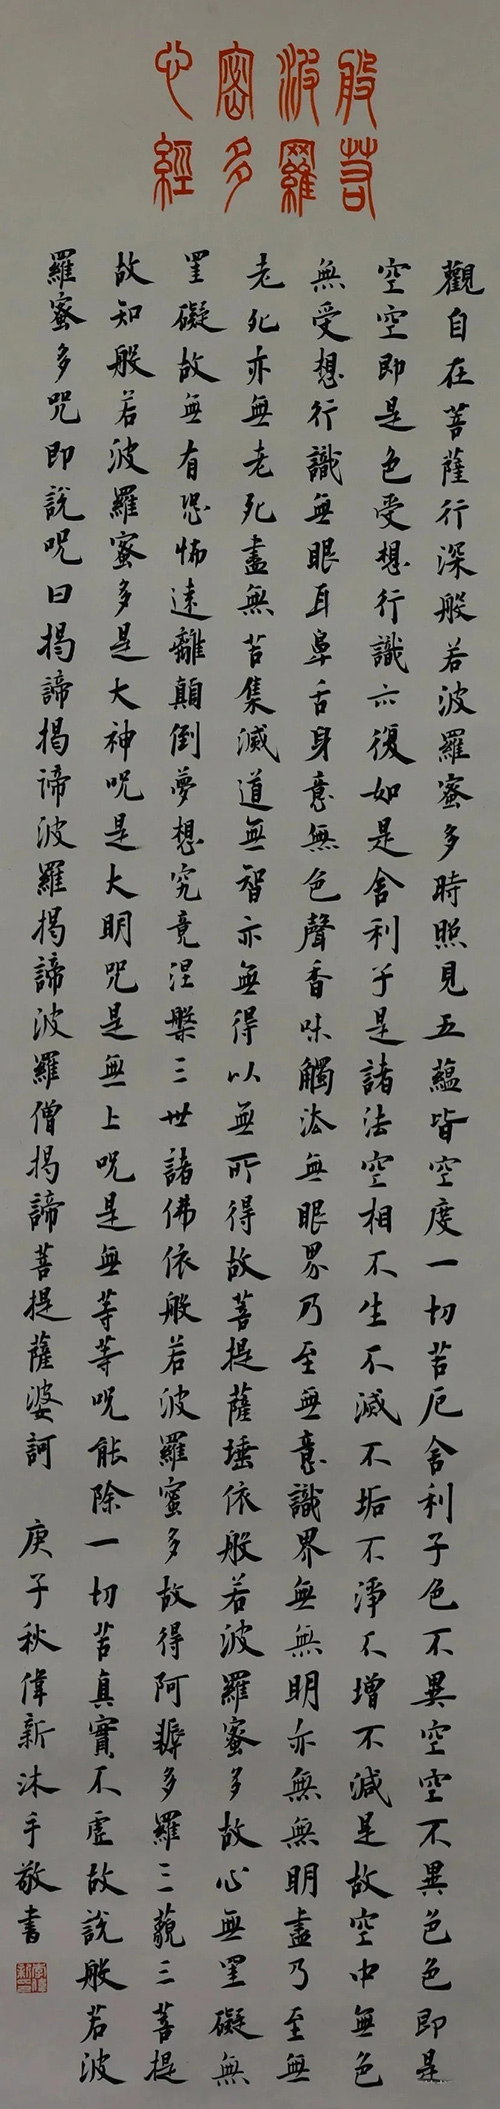 般若
波羅
密多
心經
觀自在菩薩行深般若波羅蜜多時照見五蘊皆空度一切苦厄舍利子色不異空空不異色色即是
空空即是色受想行識亦復如是舍利子是諸法空相不生不滅不垢不淨不增不減是故空中無色
無受想行識無眼耳鼻舌身意無色聲香味觸法無眼界乃至無意識界無無明亦無無明盡乃至無
老死亦無老死盡無苦集滅道無智亦無得以無所得故菩提薩埵依般若波羅蜜多故心無罣礙無
罣礙故無有恐怖遠離顛倒夢想究竟涅槃三世諸佛依般若波羅蜜多故得阿耨多羅三藐三菩提
故知般若波羅蜜多是大神咒是大明咒是無上咒是無等等咒能除一切苦真實不虛故說般若波
羅蜜多咒即說咒曰揭諦揭諦波羅揭諦波羅僧揭諦菩提薩婆訶 庚子秋偉新沐手敬書